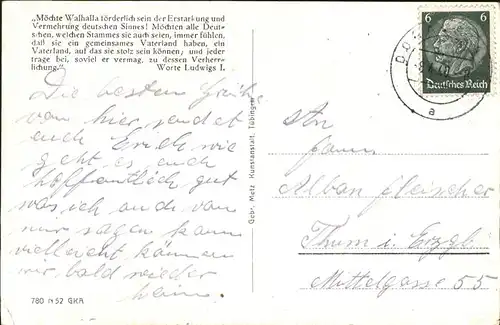 „Möchte Walhalla förderlich sein der Erstarkung und
Vermehrung deutschen Sinnes! Möchten alle Deut-
schen, welchen Stammes sie auch seien, immer fühlen,
daß sie ein gemeinsames Vaterland haben, ein
Vaterland, auf das sie stolz sein können; und jeder
trage bei, soviel er vermag, zu dessen Verherr-
lichung." Worte Ludwigs I.
Die besten Grüße
von hier sendet
euch Erich wie
geht es euch
hoffentlich gut
was ich auch von
mir sagen kann
vielleicht können
wir bald wieder
heim.
780 N 52 GKR
Gebr. Metz, Kunstanstalt, Tübingen
6 6
Deutsches Reich
a
An
Fam
Alban Fleischer
Thum i. Erzg.
Mittelgasse 55